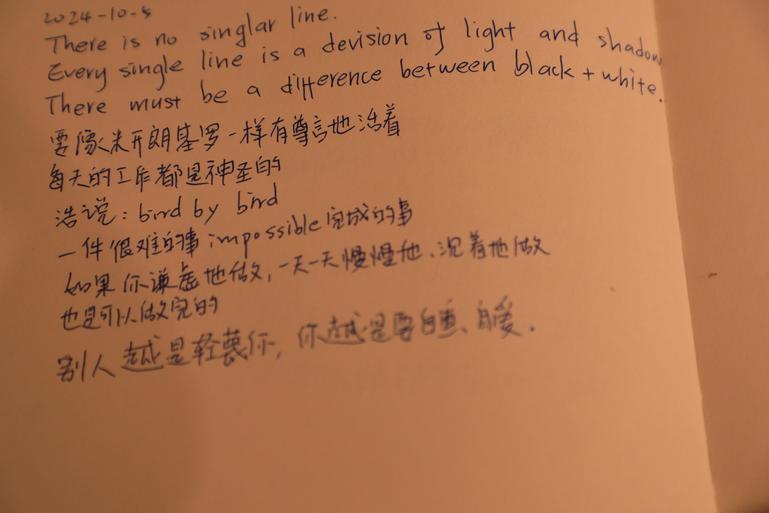 2024-10-5
There is no singlar line.
Every single line is a devision of light and shadow
There must be a difference between black + white.
要像米开朗基罗一样有尊言地活着
每天的工作都是神圣的
浩说：bird by bird
一件很难的事 impossible 完成的事
如果你谦虚地做，一天一天慢慢地、沉着地做
也是可以做完的
别人越是轻蔑你，你越是要自重、自爱．